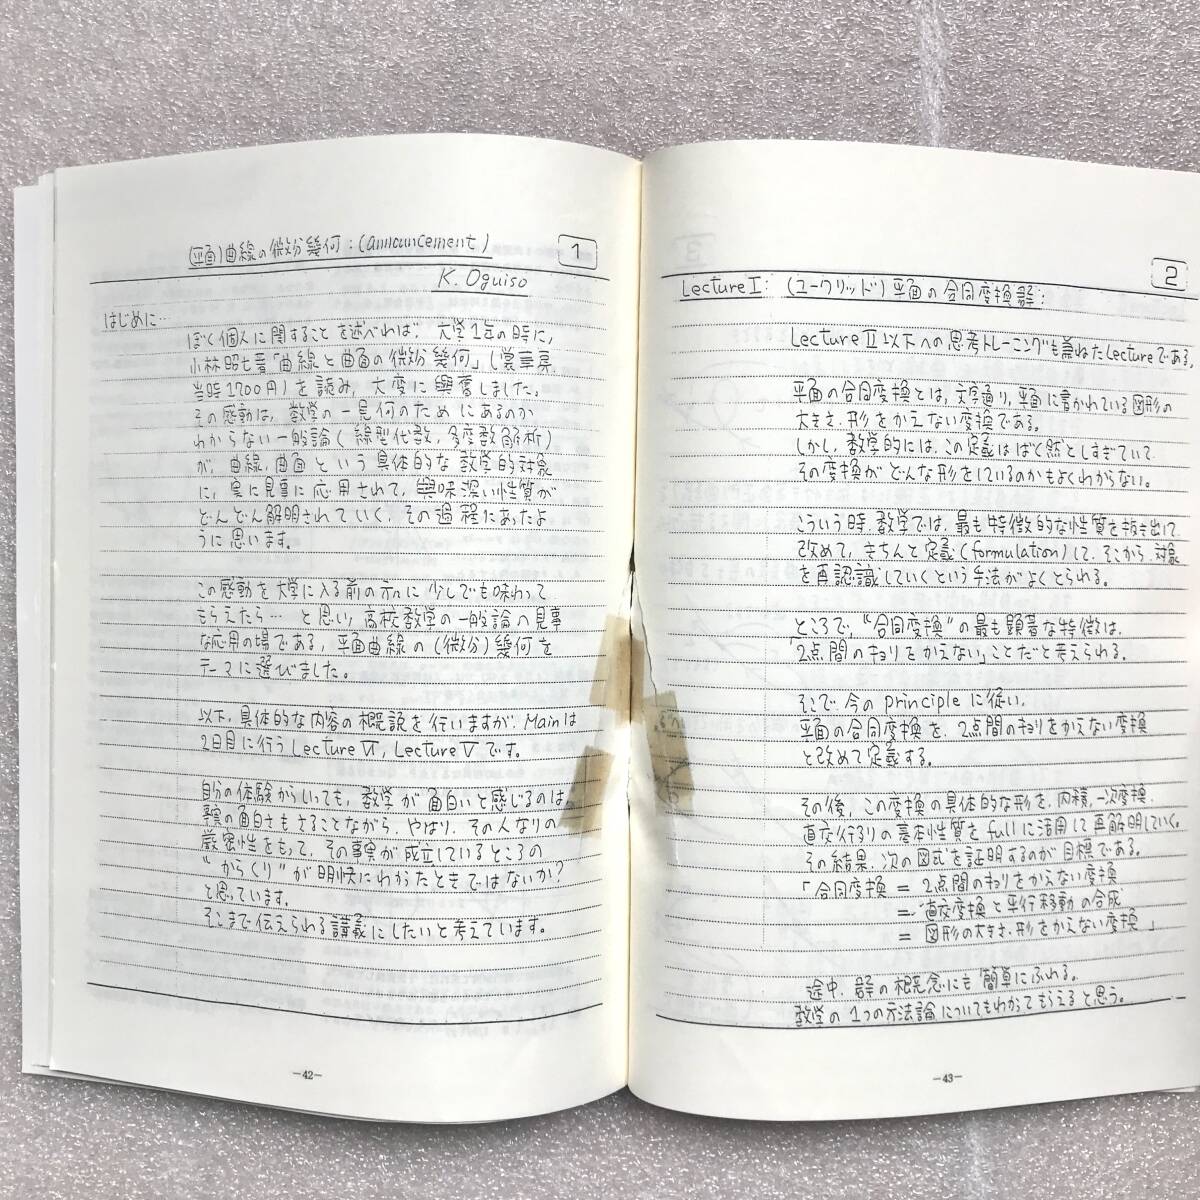 (平面)曲線の微分幾何:(announcement)
1
K. Oguiso
はじめに…
ぼく個人に関することを述べれば、大学1年の時に、
小林昭七著「曲線と曲面の微分幾何」(裳華房、
当時1200円)を読み、大変に興奮しました。
その感動は、数学の一見何のためにあるのか
わからない一般論(線型代数,多変数解析)
が、曲線,曲面という具体的な数学的対象
に、実に見事に応用されて、興味深い性質が
どんどん解明されていく、その過程にあったよ
うに思います。
この感動を大学に入る前の方々に少しでも味わって
もらえたら…と思い、高校数学の一般論の見事
な応用の場である、平面曲線の(微分)幾何を
テーマに選びました。
以下、具体的な内容の概説を行いますが、Mainは
2日目に行うLecture VI, Lecture Vです。
自分の体験からいっても、数学が面白いと感じるのは
事実の面白さもさることながら、やはり、その人なりの
厳密性をもって、その事実が成立しているところの
"からくり"が明快にわかったときではないか?
と思っています。
そこまで伝えられる講義にしたいと考えています。
-42-
2
Lecture I: (ユークリッド)平面の合同変換群:
Lecture II以下への思考トレーニングも兼ねたLectureである。
平面の合同変換とは、文字通り、平面に書かれている図形の
大きさ、形をかえない変換である。
しかし、数学的には、この定義はばく然としすぎていて、
その変換がどんな形をしているのかもよくわからない。
こういう時、数学では、最も特徴的な性質を抜き出して、
改めて、きちんと定義(formulation)して、そこから、対象
を再認識していくという手法がよくとられる。
ところで、"合同変換"の最も顕著な特徴は、
「2点間のキョリをかえない」ことだと考えられる。
そこで今のprincipleに従い、
平面の合同変換を、2点間のキョリをかえない変換
と改めて定義する。
その後、この変換の具体的な形を、内積、一次変換、
直交行列の基本性質をfullに活用して再解明していく。
その結果、次の図式を証明するのが目標である。
「合同変換 = 2点間のキョリをかえない変換
= 直交変換と平行移動の合成
= 図形の大きさ、形をかえない変換」
途中、群の概念にも簡単にふれる。
数学の1つの方法論についてもわかってもらえると思う。
-43-